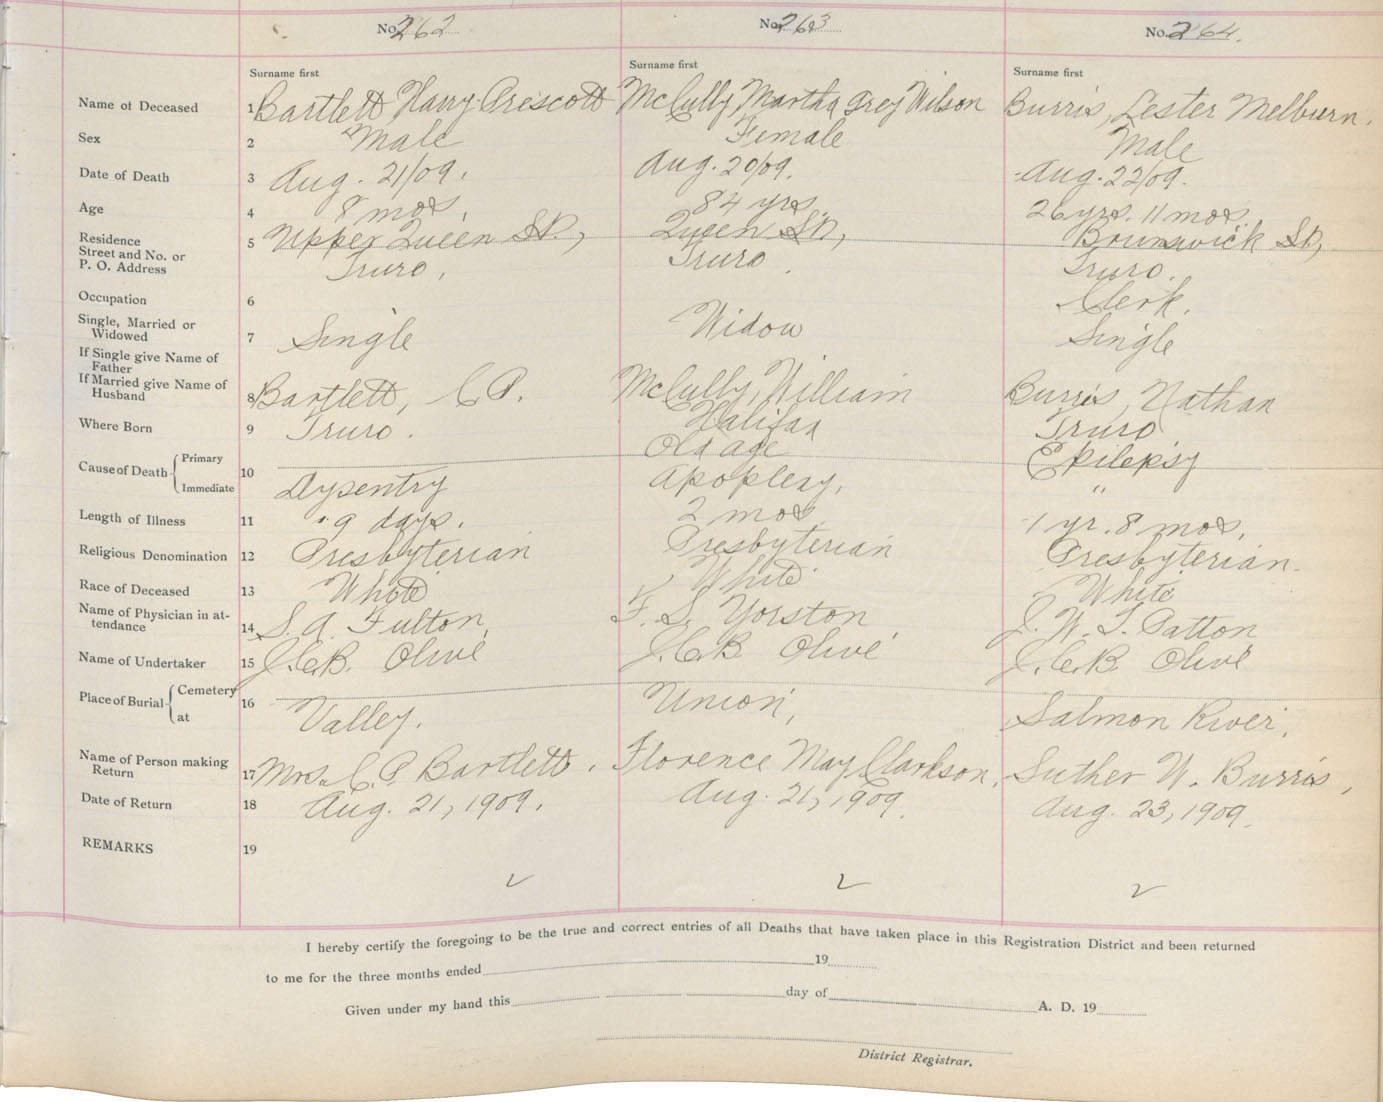 No. 262 No. 263 No. 264.
Surname first Surname first Surname first
Name of Deceased 1 Bartlett Harry Prescott McCully Martha Grey Wilson Burris, Lester Melburn.
Sex 2 Male Female Male
Date of Death 3 Aug. 21/09. Aug. 20/09. Aug. 22/09.
Age 4 8 mos. 84 yrs. 26 yrs. 11 mos.
Residence
Street and No. or
P. O. Address
5 Upper Queen St., Queen St., Brunswick St,
Truro. Truro. Truro.
Occupation 6 Clerk.
Single, Married or
Widowed
7 Single Widow Single
If Single give Name of
Father
If Married give Name of
Husband
8 Bartlett, C P. McCully, William Burris, Nathan
Where Born 9 Truro. Halifax Truro
Cause of Death Primary Old age Epilepsy
10
Immediate Dysentry Apoplexy, "
Length of Illness 11 9 days. 2 mos. 1 yr. 8 mos.
Religious Denomination 12 Presbyterian Presbyterian Presbyterian.
Race of Deceased 13 White White White
Name of Physician in at-
tendance
14 S. A. Fulton, F. S. Yorston J. W. T. Patton
Name of Undertaker 15 J.C.B. Olive J.C.B. Olive J.C.B. Olive
Place of Burial Cemetery
at
16 Valley. Union, Salmon River.
Name of Person making
Return
17 Mrs. C. P Bartlett. Florence May Clarkson. Luther W. Burris,
Date of Return 18 Aug. 21, 1909. Aug. 21, 1909. Aug. 23, 1909.
REMARKS 19
I hereby certify the foregoing to be the true and correct entries of all Deaths that have taken place in this Registration District and been returned
to me for the three months ended 19
Given under my hand this day of A. D. 19
District Registrar.